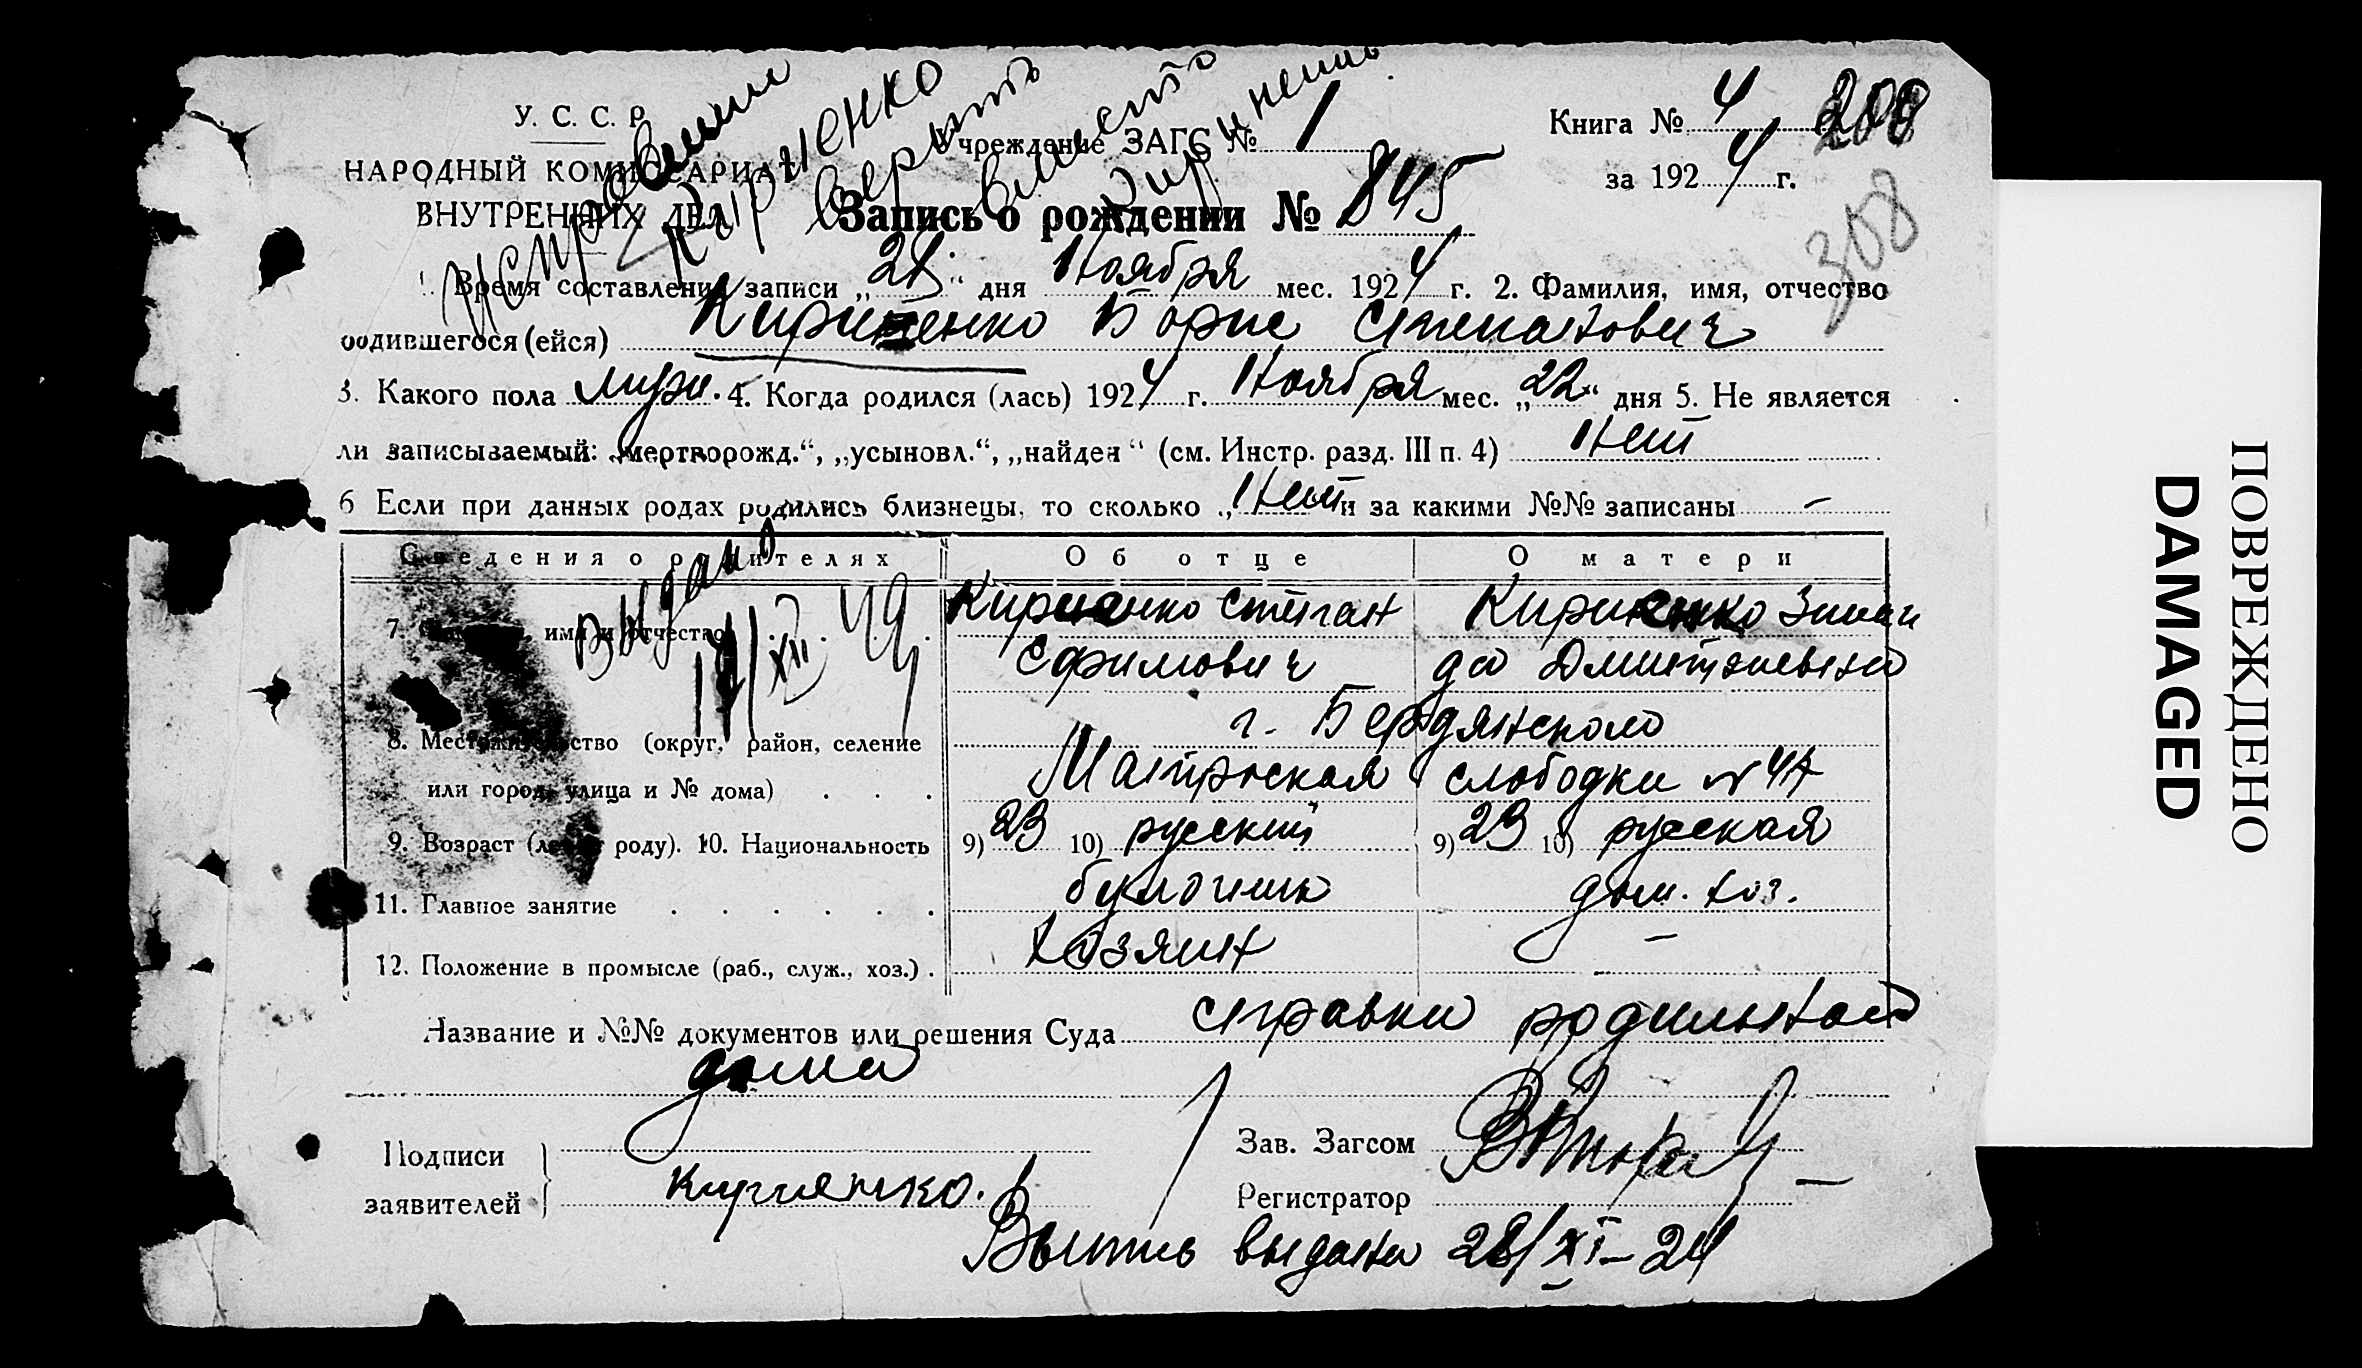 У. С. С. Р.
НАРОДНЫЙ КОМИССАРИАТ
ВНУТРЕННИХ ДЕЛ
Исправленному
Кириченко
верить
вместо
Учреждение ЗАГС № 1
Книга № 4 208
за 1924 г.
308
Запись о рождении № 845
1. Время составления записи „28“ дня Ноября мес. 1924 г. 2. Фамилия, имя, отчество
родившегося (ейся) Кириченко Борис Степанович
3. Какого пола муж. 4. Когда родился (лась) 1924 г. Ноября мес. „22“ дня 5. Не является
ли записываемый: „мертворожд.“, „усыновл.“, „найден“ (см. Инстр. разд. III п. 4) Нет
6 Если при данных родах родились близнецы, то сколько „Нет и за какими №№ записаны –
Сведения о родителях Об отце О матери
Выдано
17/XII 49
7. имя и отчество Кириенко Степан Кириенко Зинаи
Ефимович да Дмитриевна
г. Бердянского
8. Местожительство (округ, район, селение
или город, улица и № дома) Матросская слободки № 47
9. Возраст (лет роду). 10. Национальность 9) 23 10) русский 9) 23 10) русская
11. Главное занятие булочник дом. хоз.
12. Положение в промысле (раб., служ., хоз.) Хозяин –
Название и №№ документов или решения Суда справки родильного
дома
Подписи
заявителей Кириенко.
Зав. Загсом
Регистратор
Выпись выдана 28/XI–24
ПОВРЕЖДЕНО
DAMAGED